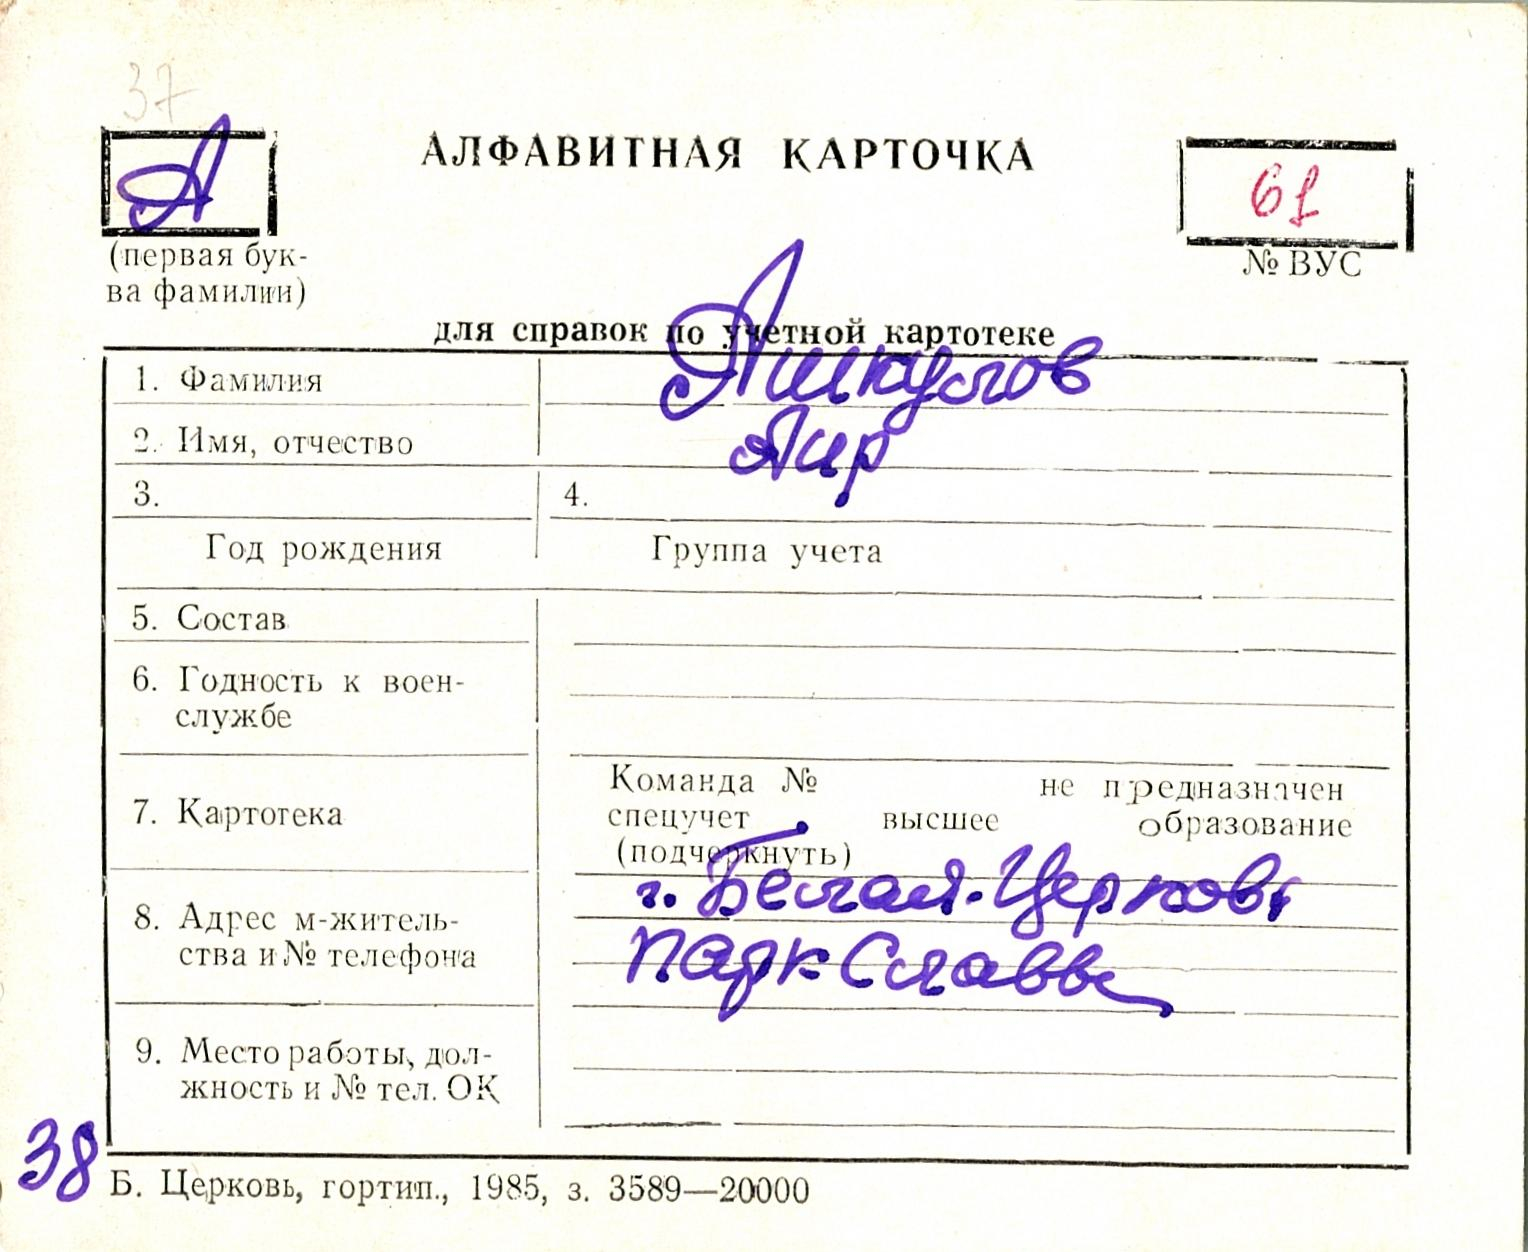 37
А
АЛФАВИТНАЯ КАРТОЧКА
61
(первая бук-
ва фамилии)
№ ВУС
для справок по учетной картотеке
1. Фамилия
Ашкулов
2. Имя, отчество
Аир
3.
4.
Год рождения
Группа учета
5. Состав
6. Годность к воен-
службе
7. Картотека
Команда № не предназначен
спецучет высшее образование
(подчеркнуть)
8. Адрес м-житель-
ства и № телефона
г. Белая-Церковь
парк Славы
9. Место работы, дол-
жность и № тел. ОК
38
Б. Церковь, гортип., 1985, з. 3589—20000